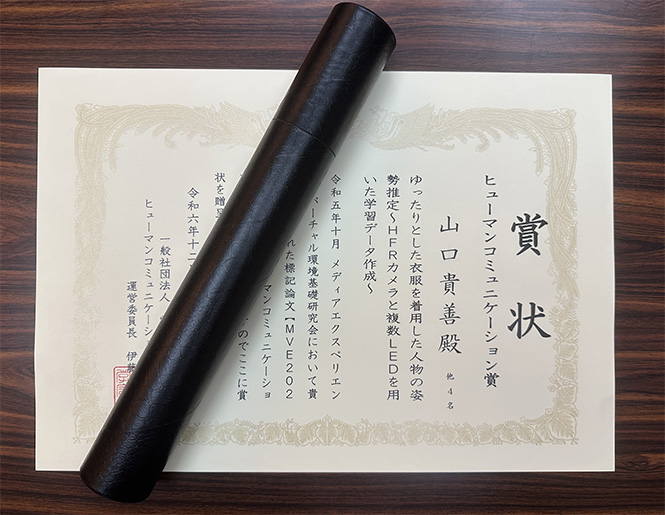 賞状
ヒューマンコミュニケーション賞
山口貴善殿
他4名
ゆったりとした衣服を着用した人物の姿
勢推定～HFRカメラと複数LEDを用
いた学習データ作成～
令和五年十月 メディアエクスペリエン
バーチャル環境基礎研究会において貴
れた標記論文【MVE202
マンコミュニケーショ
のでここに賞
状を贈
令和六年十二
一般社団法人
ヒューマンコミュニケーシ
運営委員長 伊藤